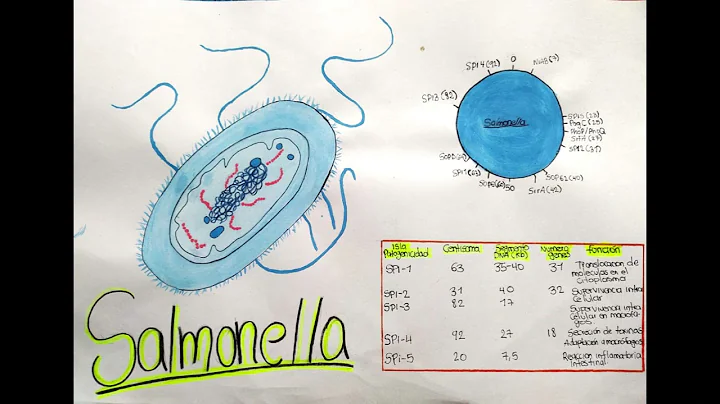 Salmonella
0
NUEB(7)
SPI4(92)
SPI3(82)
SPI5(23)
PagC(25)
PhoP/PhoQ
SifA(27)
SPI2(31)
SOPE2(40)
SifA(42)
50
SopE(60)
SPI1(63)
SopD(64)
Salmonella
Isla Patogenicidad Centisoma Segmento DNA (Kb) Número genes función
SPI-1 63 35-40 31 Translocación de
moleculas en el
citoplasma
SPI-2 31 40 32 Supervivencia intra
Celular
SPI-3 82 17 Supervivencia intra
Celular en macrofa-
gos
SPI-4 92 27 18 Secreción de toxinas
Adaptación a macrófagos
SPI-5 20 7,5 Reacción inflamatoria
intestinal